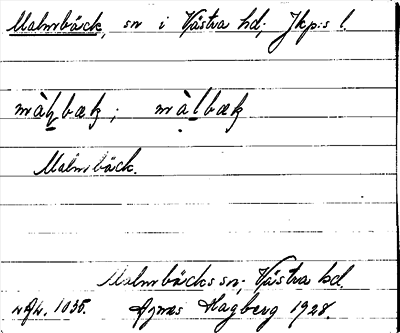 Malmbäck, sn i Västra hd, Jkp:s l.
màɫ̠bæk; màl̠bæk
Malmbäck.
Malmbäcks sn, Västra hd.
1035. Agnes Hagberg 1928.